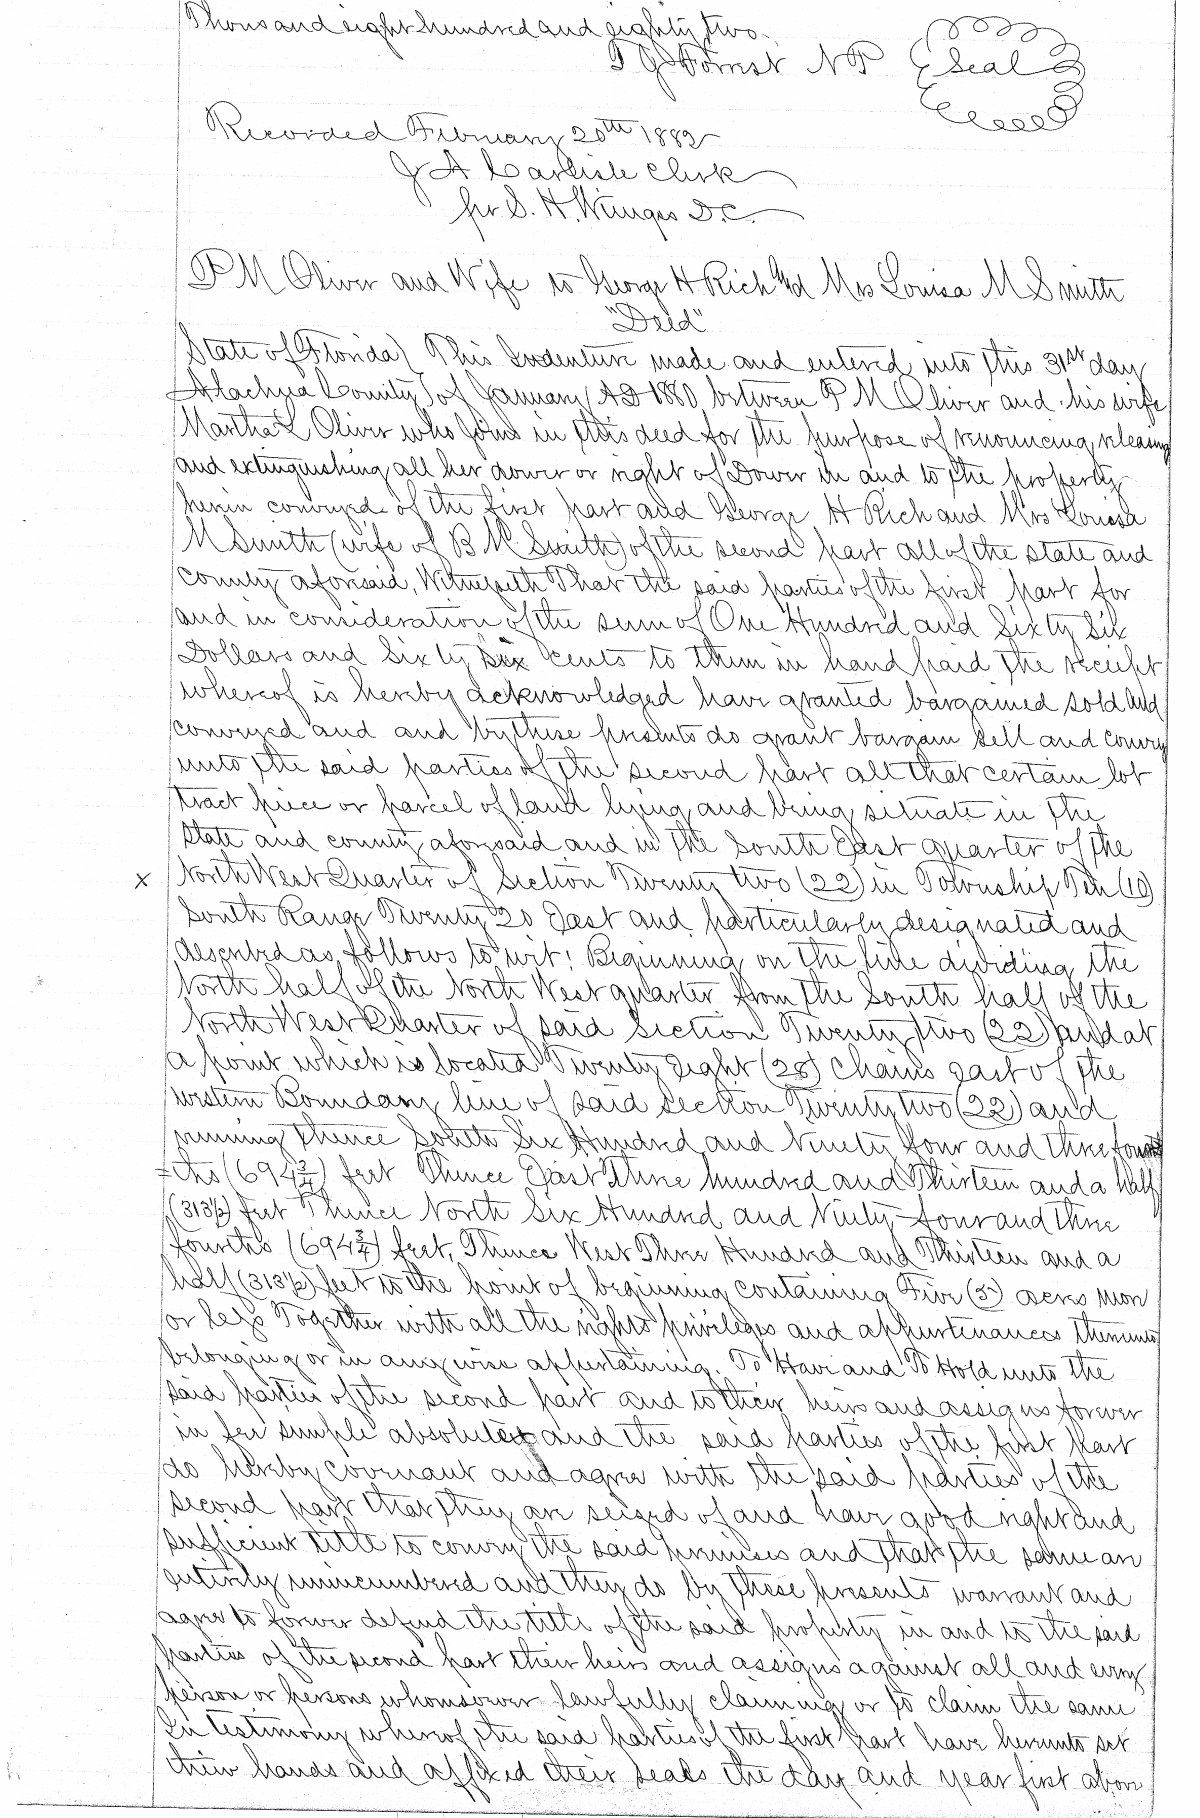 Thousand eight hundred and eighty two.
T J Forrest N P Seal
Recorded February 20th 1882
J A Carlisle Clerk
pr S. H. Wienges D.C.
P M Oliver and Wife to George H Rich and Mrs Louisa M Smith
"Deed"
State of Florida) This Indenture made and entered into this 31st day
Alachua County) of January AD 1880 between P M Oliver and his wife
Martha L Oliver who joins in this deed for the purpose of renouncing, releasing
and extinguishing all her dower or right of Dower in and to the property
herein conveyed of the first part and George H Rich and Mrs Louisa
M Smith (wife of B M Smith) of the second part all of the state and
county aforesaid, Witnesseth That the said parties of the first part for
and in consideration of the sum of One Hundred and Sixty Six
Dollars and Sixty six cents to them in hand paid the receipt
whereof is hereby acknowledged have granted bargained sold and
conveyed and and by these presents do grant bargain sell and convey
unto the said parties of the second part all that certain lot
tract piece or parcel of land lying and being situate in the
State and county aforesaid and in the South East quarter of the
x North West Quarter of Section Twenty two (22) in Township Ten (10)
South Range Twenty 20 East and particularly designated and
described as follows to wit: Beginning on the line dividing the
North half of the North West quarter from the South half of the
North West Quarter of said Section Twenty two (22) and at
a point which is located Twenty Eight (28) Chains East of the
western Boundary line of said section Twenty two (22) and
running Thence South Six Hundred and Ninety four and three four
=ths (694 3/4) feet Thence East Three hundred and Thirteen and a half
(313½) feet Thence North Six Hundred and Ninety four and three
fourths (694 3/4) feet, Thence West Three Hundred and Thirteen and a
half (313½) feet to the point of beginning containing Five (5) acres more
or less Together with all the rights privileges and appurtenances thereunto
belonging or in any wise appertaining. To Have and To Hold unto the
said parties of the second part and to their heirs and assigns forever
in fee simple absolute and the said parties of the first part
do hereby covenant and agree with the said parties of the
second part that they are seized of and have good right and
sufficient title to convey the said premises and that the same are
entirely unincumbered and they do by these presents warrant and
agree to forever defend the title of the said property in and to the said
parties of the second part their heirs and assigns against all and every
person or persons whomsoever lawfully claiming or to claim the same
In testimony whereof the said parties of the first part have hereunto set
their hands and affixed their seals the day and year first above